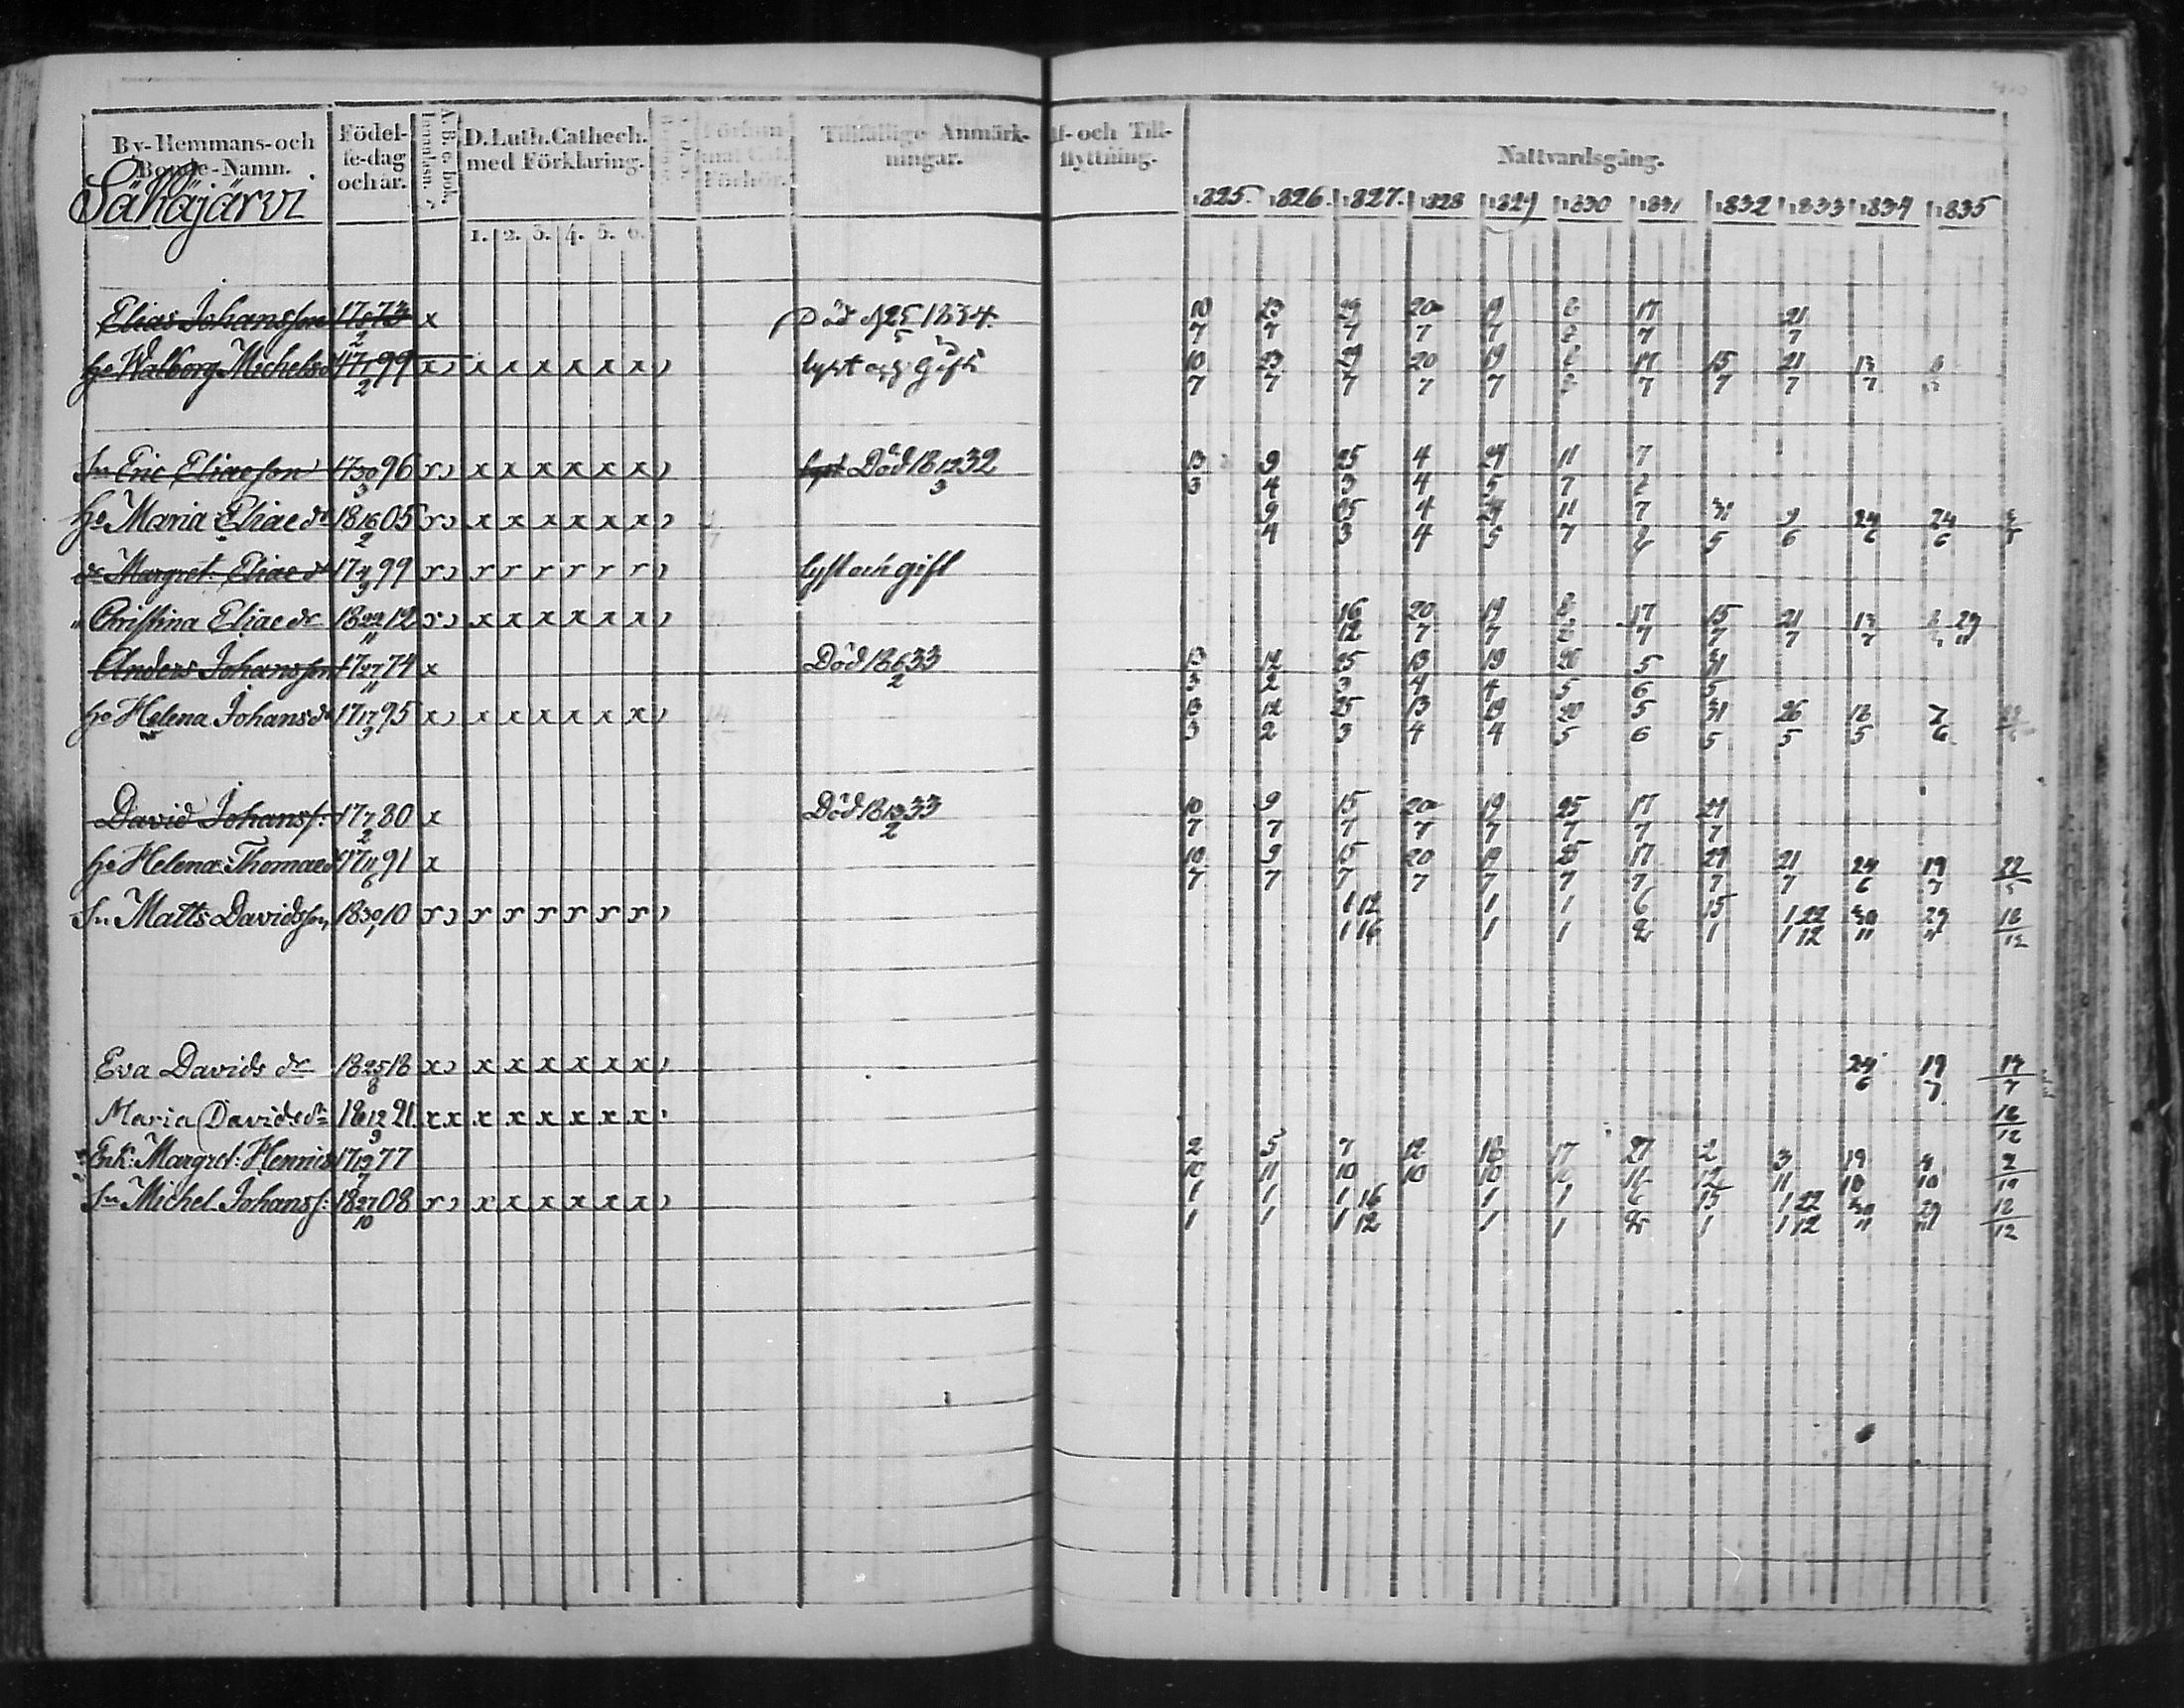 By-Hemmans-och Bonde-Namn. Födel-se-dag och år. A. B. c bok. Innanläsn. D. Luth. Cathech. med Förklaring. Förhör. Tillfällige Anmärk-ningar. f- och Till-flyttning. Nattvardsgång.
Sähäjärvi
1825. 1826. 1827. 1828 1829 1830 1831 1832 1833 1834 1835
1. 2. 3. 4. 5. 6.
Elias Johansson 17 5/2 73 x Död d 25/5 1834. 10/7 23/7 29/7 20/7 9/7 17/7 21/7
hu Walborg Michelsd 17 99 x x x x x x x lyst och gift 10/7 23/7 29/7 20/7 19/7 17/7 15/7 21/7 13/7
Sn Eric Eliaesson 17 30/3 96 r x x x x x x lyst Död 18 12/3 32 13/3 9/4 25/3 4/4 29/5 11/7 7/2
hu Maria Eliaedr 18 16/2 05 r x x x x x x 9/4 25/3 4/4 29/5 11/7 7/2 31/5 9/6 24/6 24/6
dr Margret. Eliaedr 17 99 r r r r r r r lyst och gift
" Christina Eliaedr 18 22/11 12 r x x x x x x 16/12 20/7 19/7 17/7 15/7 21/7 13/7 29/11
Anders Johansson 17 27/11 74 x Död 18 6/2 33 13/3 12/2 25/3 13/4 19/4 20/5 5/6 31/5
hu Helena Johansdr 17 17/3 95 x x x x x x x 13/3 12/2 25/3 13/4 19/4 20/5 5/6 31/5 26/5 18/5 7/6
David Johanss: 17 7/2 80 x Död 18 13/2 33 10/7 9/7 15/7 20/7 19/7 25/7 17/7 29/7
hu Helena Thomaed 17 11/6 91 x 10/7 9/7 15/7 20/7 19/7 25/7 17/7 29/7 21/7 24/6 19/7 22/5
Sn Matts Davidsson 18 30 10 r r r r r r r 1/1 12/16 1/1 1/1 6/2 15/1 1/1 22/12 30/11 29/11 18/12
Eva Davids dr 18 25/8 18 x x x x x x x 24/6 19/7 17/7
Maria Davidsdr 18 12/9 21 x x x x x x x x 18/12
Enk: Margret: Henrics 17 19/7 77 2/10 5/11 7/10 12/10 18/10 17/10 27/11 2/12 3/11 19/10 4/10 2/10
Sn Michel Johanss: 18 27/10 08 r x x x x x x 1/1 1/1 1/1 16/12 1/1 1/1 6/2 15/1 1/1 22/12 30/11 29/11 18/12